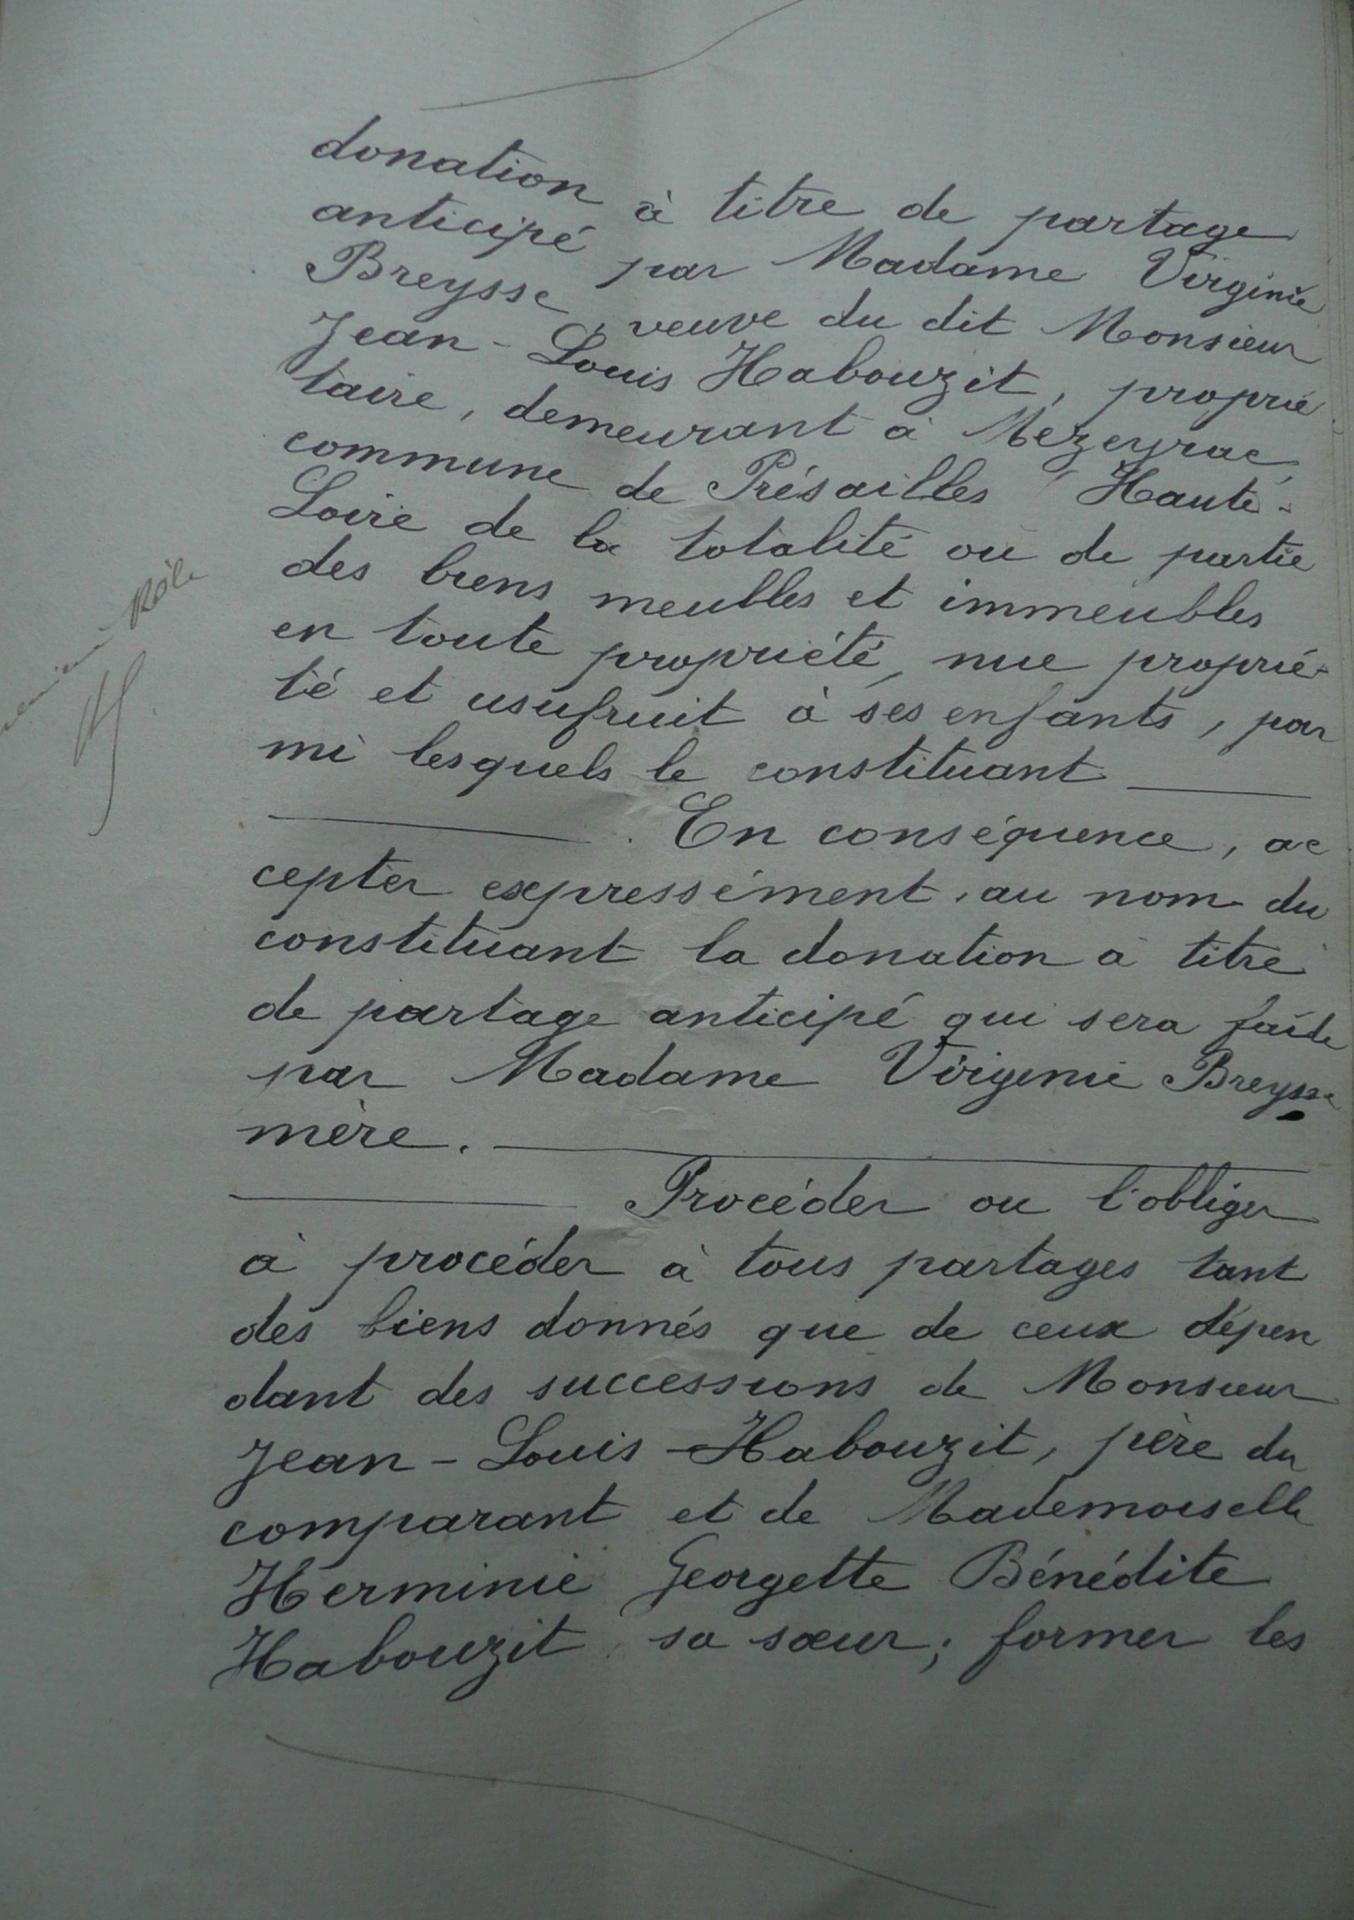 donation à titre de partage
anticipé par Madame Virginie
Breysse, veuve du dit Monsieur
Jean-Louis Habouzit, proprié
taire, demeurant à Mézeyrac,
commune de Présailles Haute-
Loire de la totalité ou de partie
des biens meubles et immeubles
en toute propriété, nue proprié-
té et usufruit à ses enfants, par
mi lesquels le constituant
En conséquence, ac
cepter expressément, au nom du
constituant la donation à titre
de partage anticipé qui sera faite
par Madame Virginie Breysse
mère.
Procéder ou l'obliger
à procéder à tous partages tant
des biens donnés que de ceux dépen
dant des successions de Monsieur
Jean-Louis Habouzit, père du
comparant et de Mademoiselle
Herminie Georgette Bénédite
Habouzit sa sœur; former les
Rôle